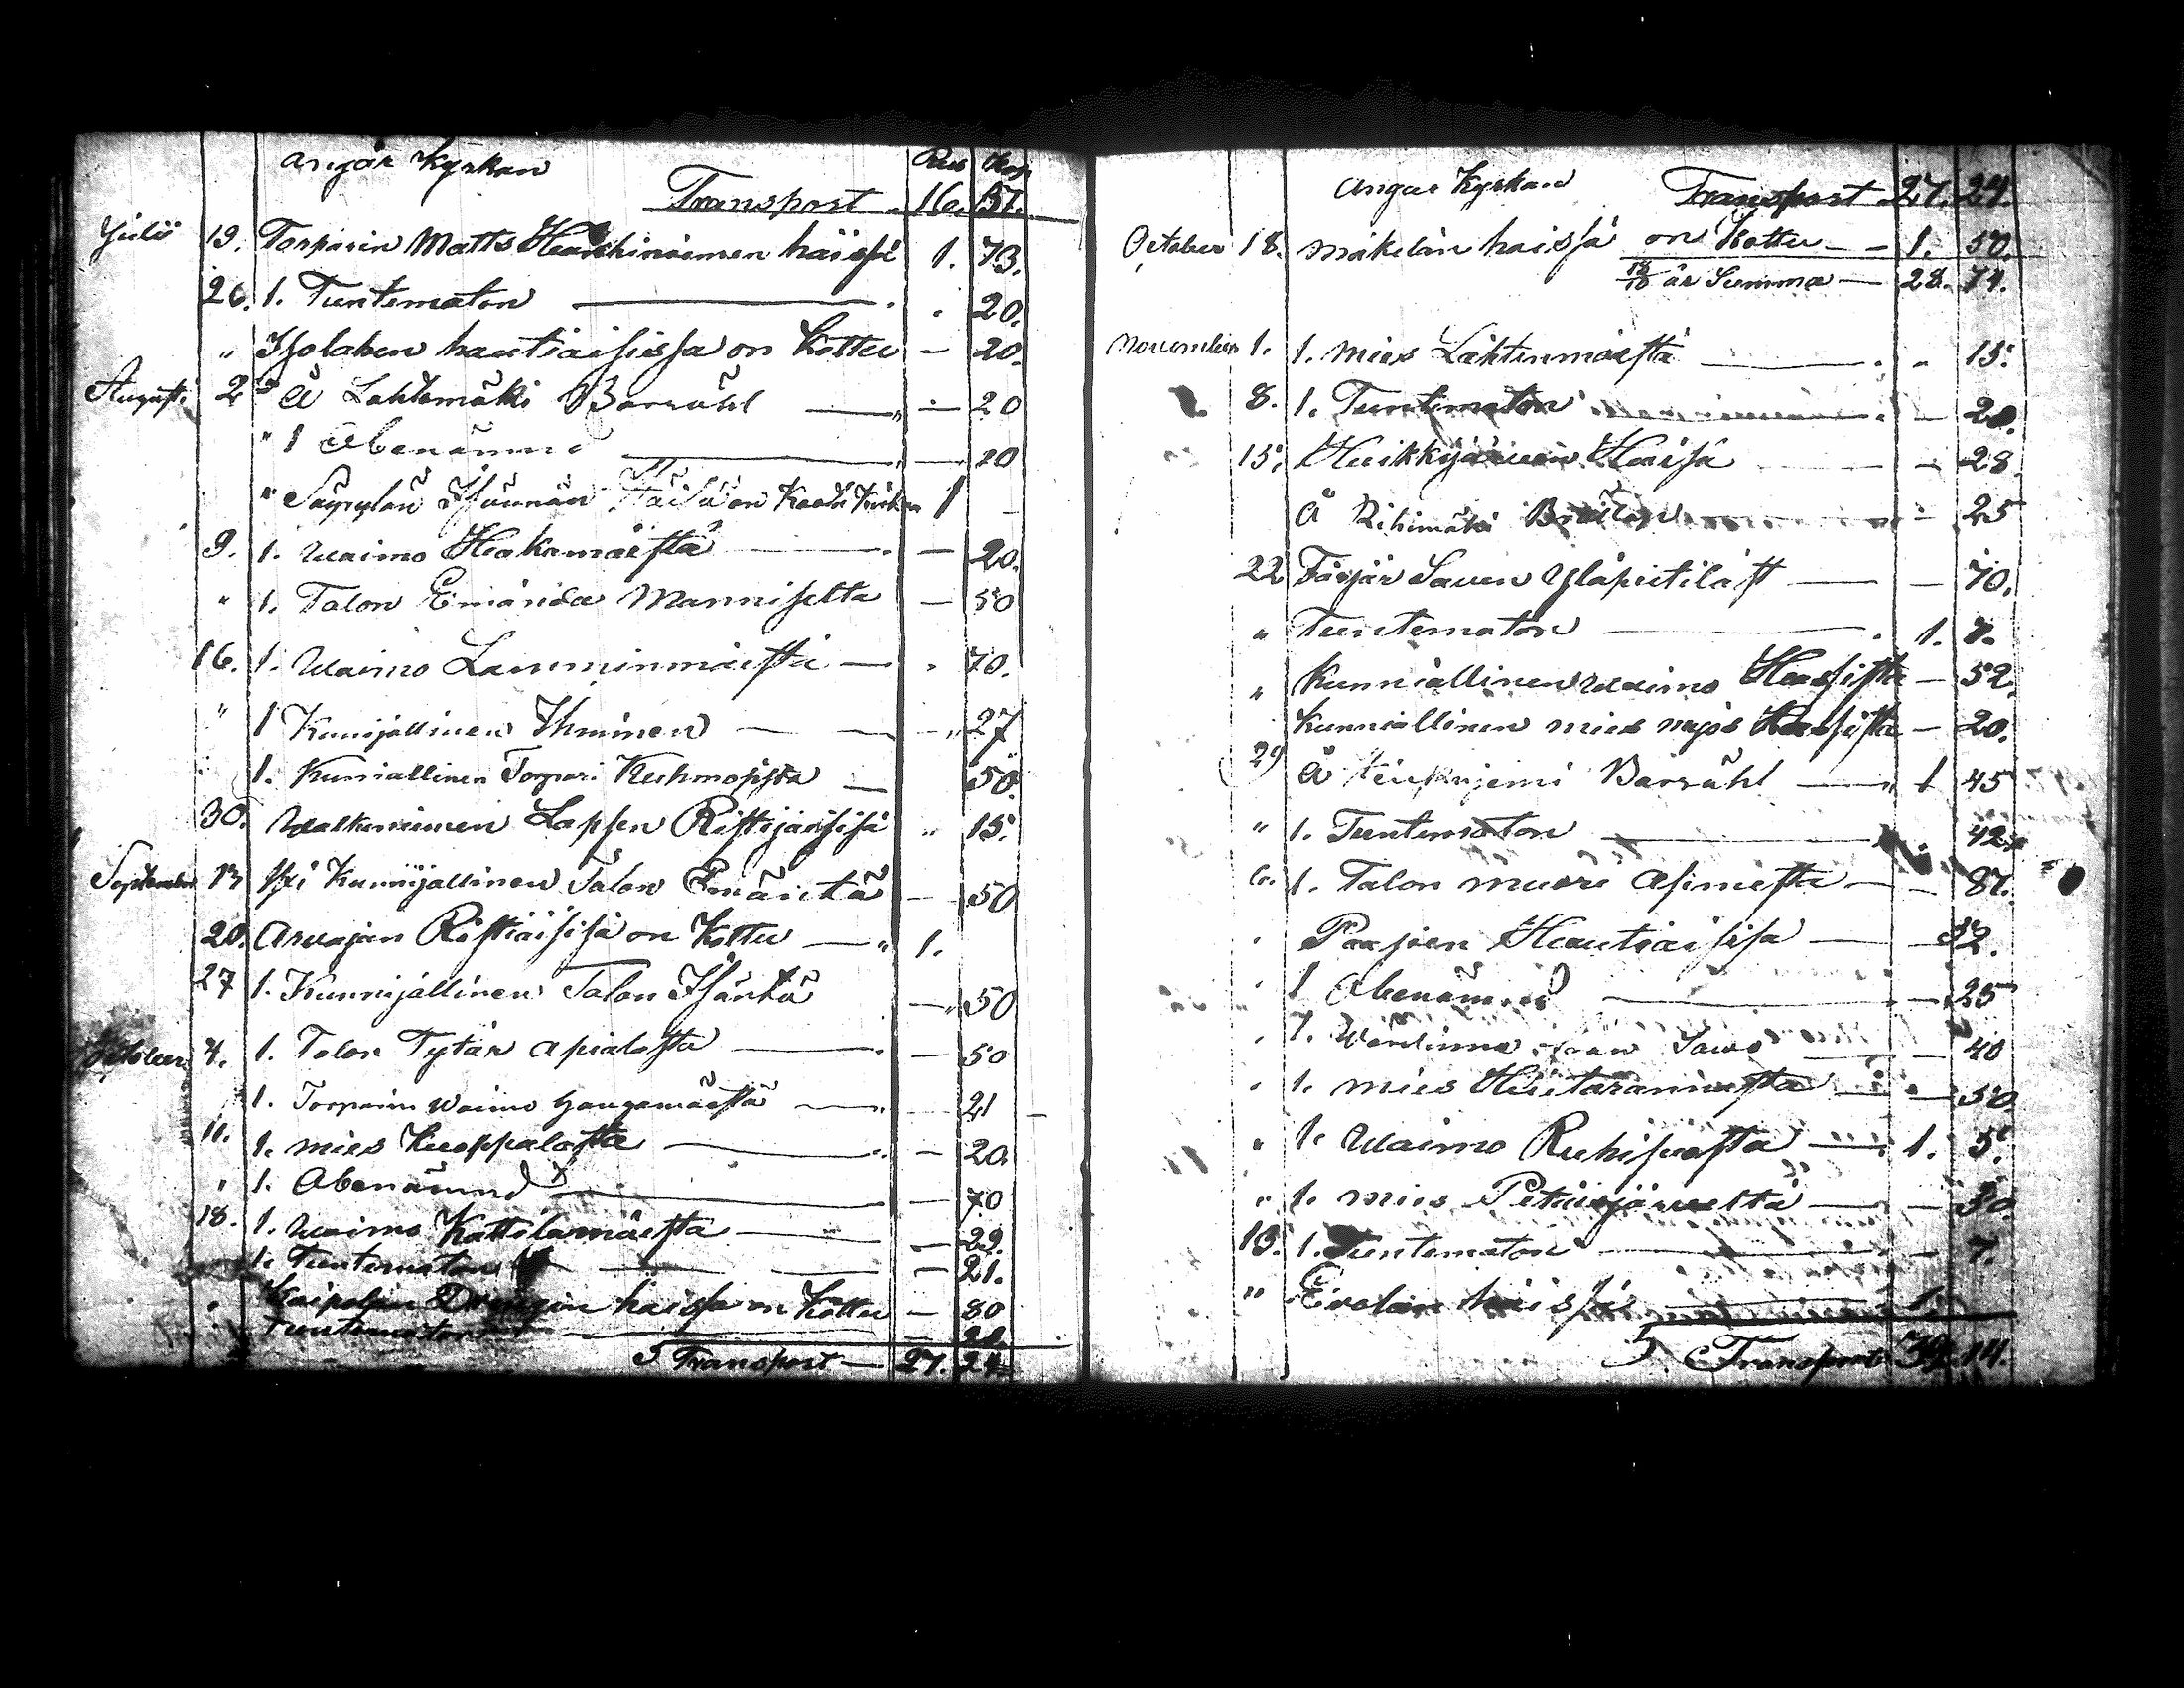 angår Kyrkan Rub Kop
Transport 16. 51.
Julii 19. Torparin Matts Heickinäimen häissä 1. 73.
26. 1. Tuntematon 20.
" Isolahen hautiaisissa on Kottu — 20.
Augusti 2 å Lahtemäki Barnöhl — 20
" 1 Obenämnd — 20
" Säyrylän Isännän Häisä on 1 —
9. 1. Waimo Hakamäestä — 20.
" 1. Talon Emändä Manniselta — 50
16. 1. Waimo Lamminmäestä — 70.
" 1 Kunijallinen Ihminen — 27
1. Kunialllinen Torpari Kuhmoista — 50.
30. Lapsen Ristijäisisä " 15.
September 13 Yxi Kunnijallinen Talon Emäntä — 50
20. Arvajan Ristiäisisä on Kottu — " 1.
27 1. Kunnijallinen Talon Isäntä — 50
October 4. 1. Talon Tytär apialasta — 50
1. Torparin Waimo Haugamäestä — 21
11. 1. mies Kuoppalasta — 20.
" 1. Obenämnd — 70
18. 1. Waimo Kattilamäestä — 29.
1. Tuntematon — 21.
" Kaipolan Drengin haissa on Kottu — 80
Tuntematon
S Transport — 27. 24.
Angår Kyrkan Transport 27. 24.
October 18. Mäkelän haissä on Kottu — 1. 50.
18/10 är Summa — 28. 74.
November 1. 1. Mies Lahtenmäestä " 15.
8. 1. Tuntematon — 20.
15. Heikkijärven Haisä — 28.
å Rihimäki — 25
22 Färjär Saven Yläpeitiläst — 70.
" Tuntematon 1. 7.
" Kunniallinen Waimo Hassista — 52.
Kunniallinen mies myös Hassista — 20.
29 å Barnöhl — 1 45
" 1. Tuntematon 42.
6. 1. Talon muori Asimesta — 87.
" Paajien Hautiaisisa — 32.
" 1 Obenämnd — 25
" 1. Wärdinna ifrån Sawo — 40
" 1. mies Hietarannasta — 50.
" 1. Waimo Ruhipuasta — 1. 5.
" 1. mies Petäisjärveltä — 30.
13. 1. Tuntematon — 7.
" Eerolan häissä 1.
S Transport 39. 14.